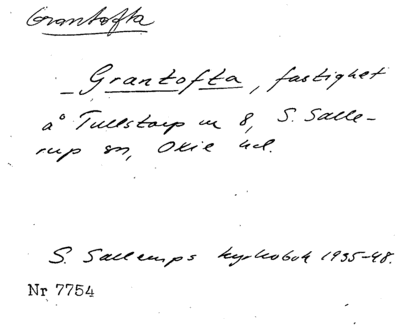 Grantofta
– Grantofta, fastighet
å Tullstorp nr 8, S. Salle-
rup sn, Oxie hd.
S. Sallerups kyrkobok 1935-48.
Nr 7754